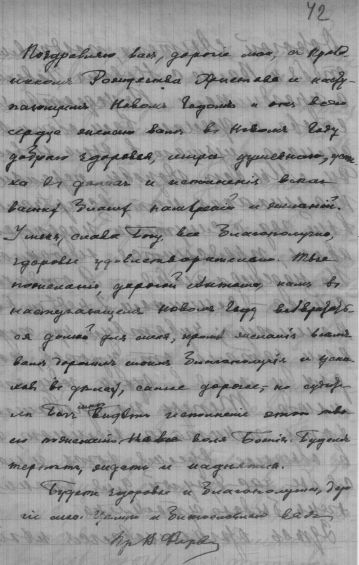 42
Поздравляю васъ, дорогіе мои, съ празд
никомъ Рождества Христова и насту-
пающимъ Новымъ Годомъ и отъ всего
сердца желаю вамъ въ Новомъ Году
добраго здоровья, мира душевнаго, успѣ
ха въ дѣлахъ и исполненія всѣхъ
вашихъ благихъ намѣреній и желаній.
У меня, слава Богу, все благополучно,
здоровье удовлетворительно. Твое
пожеланіе, дорогой намъ въ
наступающемъ новомъ году возвратить-
ся домой для меня, кромѣ желанія всѣмъ
вамъ дорогимъ моимъ благополучія и успѣ
ховъ въ дѣлахъ, самое дорогое, но судилъ
ли Богъ мнѣ видѣть исполненіе этого тво
его пожеланія воля Божія. Будемъ
терпѣть, ждать и надѣяться.
Будьте здоровы и благополучны, доро
гіе мои. Цѣлую и благословляю васъ
Пр. В.